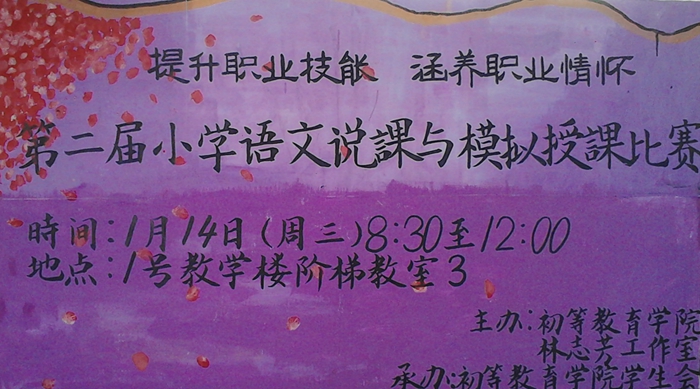 提升职业技能 涵养职业情怀
第二届小学语文说課与模拟授課比赛
時间:1月14日(周三)8:30至12:00
地点:1号教学楼阶梯教室3
主办:初等教育学院
林志芳工作室
承办:初等教育学院学生会